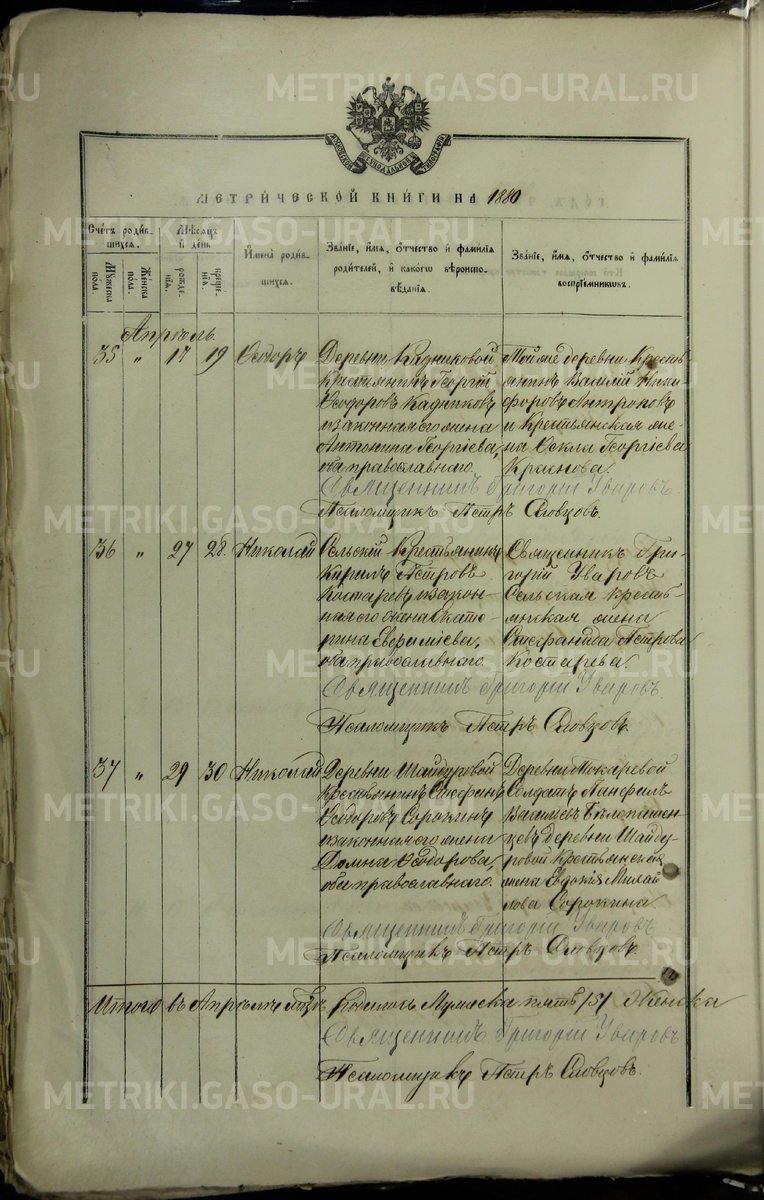 METRIKI.GASO-URAL.RU
МЕТРИЧЕСКОЙ КНИГИ НА 1880
Счетъ родившихся.
Мужеска пола.
Женска пола.
Мѣсяцъ и день
рожденія.
крещенія.
Имена родившихся.
Званіе, имя, отчество и фамилія родителей, и какого вѣроисповѣданія.
Званіе, имя, отчество и фамилія воспріемниковъ.
Апрѣль.
35 " 17 19 Ѳеодоръ
Деревни Кадниковой
крестьянинъ Георгій
Ѳеодоровъ Кадниковъ
и законная его жена
Антонина Георгіева,
оба православнаго.
Тойже деревни кресть
янинъ Василій Ники
форовъ Антроповъ
и крестьянская же
на Ѳекла Георгіева
Краснова.
Священникъ Григорій Уваровъ.
Псаломщикъ Петръ Словцовъ.
36 " 27 28. Николай
Сельскій крестьянинъ
Кирилъ Петровъ
Костаревъ и закон
ная его жена Екате
рина Евфиміева,
оба православнаго.
Священникъ Гри-
горій Уваровъ
Сельская кресть-
янская жена
Стефанида Петрова
Костарева.
Священникъ Григорій Уваровъ.
Псаломщикъ Петръ Словцовъ.
37 " 29 30 Николай
Деревни Шайдуровой
крестьянинъ Стефанъ
Ѳеодоровъ Сорокинъ
и законная его жена
Домна Ѳеодорова,
оба православнаго.
Деревни Токаревой
Солдатъ Панфилъ
Васильевъ Бѣлопашен-
цевъ деревни Шайду-
ровой крестьянская
жена Евдокія Михай
лова Сорокина
Священникъ Григорій Уваровъ
Псаломщикъ Петръ Словцовъ.
Итого въ Апрѣлѣ м-цѣ родилось Мужеска пять /5/ Женска
Священникъ Григорій Уваровъ
Псаломщикъ Петръ Словцовъ.